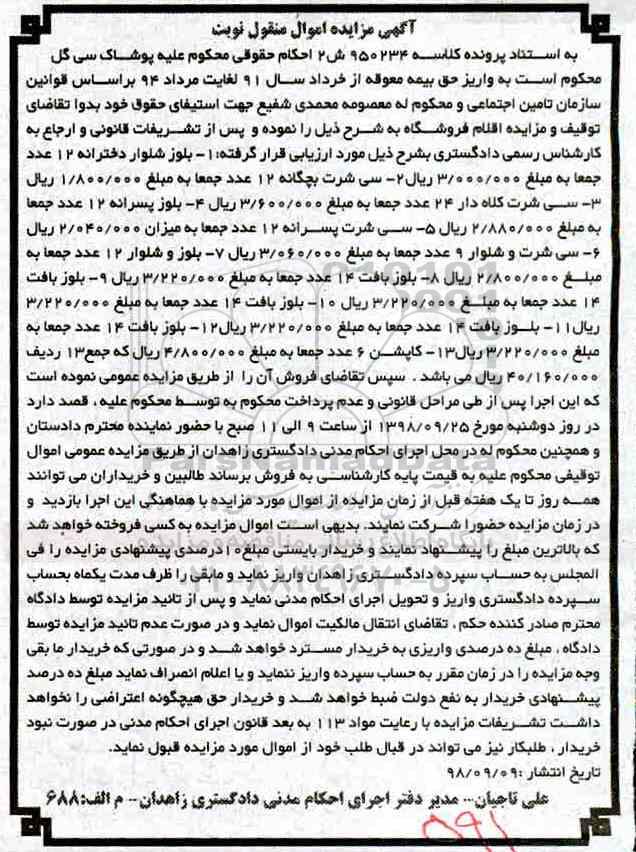 آگهی مزایده اموال منقول نوبت
به استناد پرونده کلاسه ۹۵۰۲۳۴ ش۲ احکام حقوقی محکوم علیه پوشاک سی گل
محکوم است به واریز حق بیمه معوقه از خرداد سال ۹۱ لغایت مرداد ۹۴ براساس قوانین
سازمان تامین اجتماعی و محکوم له معصومه محمدی شفیع جهت استیفای حقوق خود بدوا تقاضای
توقیف و مزایده اقلام فروشگاه به شرح ذیل را نموده و پس از تشریفات قانونی و ارجاع به
کارشناس رسمی دادگستری بشرح ذیل مورد ارزیابی قرار گرفته:۱- بلوز شلوار دخترانه ۱۲ عدد
جمعا به مبلغ ۳/۰۰۰/۰۰۰ ریال۲- سی شرت بچگانه ۱۲ عدد جمعا به مبلغ ۱/۸۰۰/۰۰۰ ریال
۳- سی شرت کلاه دار ۲۴ عدد جمعا به مبلغ ۳/۶۰۰/۰۰۰ ریال ۴- بلوز پسرانه ۱۲ عدد جمعا
به مبلغ ۲/۸۸۰/۰۰۰ ریال ۵- سی شرت پسرانه ۱۲ عدد جمعا به میزان ۲/۰۴۰/۰۰۰ ریال
۶- سی شرت و شلوار ۹ عدد جمعا به مبلغ ۳/۰۶۰/۰۰۰ ریال ۷- بلوز و شلوار ۱۲ عدد جمعا به
مبلغ ۲/۸۰۰/۰۰۰ ریال ۸- بلوز بافت ۱۴ عدد جمعا به مبلغ ۳/۲۲۰/۰۰۰ ریال ۹- بلوز بافت
۱۴ عدد جمعا به مبلغ ۳/۲۲۰/۰۰۰ ریال ۱۰- بلوز بافت ۱۴ عدد جمعا به مبلغ ۳/۲۲۰/۰۰۰
ریال۱۱- بلوز بافت ۱۴ عدد جمعا به مبلغ ۳/۲۲۰/۰۰۰ ریال۱۲- بلوز بافت ۱۴ عدد جمعا به
مبلغ ۳/۲۲۰/۰۰۰ ریال۱۳- کاپشن ۶ عدد جمعا به مبلغ ۴/۸۰۰/۰۰۰ ریال که جمع۱۳ ردیف
۴۰/۱۶۰/۰۰۰ ریال می باشد . سپس تقاضای فروش آن را از طریق مزایده عمومی نموده است
که این اجرا پس از طی مراحل قانونی و عدم پرداخت محکوم به توسط محکوم علیه ، قصد دارد
در روز دوشنبه مورخ ۱۳۹۸/۰۹/۲۵ از ساعت ۹ الی ۱۱ صبح با حضور نماینده محترم دادستان
و همچنین محکوم له در محل اجرای احکام مدنی دادگستری زاهدان از طریق مزایده عمومی اموال
توقیفی محکوم علیه به قیمت پایه کارشناسی به فروش برساند طالبین و خریداران می توانند
همه روز تا یک هفته قبل از زمان مزایده از اموال مورد مزایده با هماهنگی این اجرا بازدید و
در زمان مزایده حضورا شرکت نمایند. بدیهی است اموال مزایده به کسی فروخته خواهد شد
که بالاترین مبلغ را پیشنهاد نمایند و خریدار بایستی مبلغ۱۰درصدی پیشنهادی مزایده را فی
المجلس به حساب سپرده دادگستری زاهدان واریز نماید و مابقی را ظرف مدت یکماه بحساب
سپرده دادگستری واریز و تحویل اجرای احکام مدنی نماید و پس از تائید مزایده توسط دادگاه
محترم صادر کننده حکم ، تقاضای انتقال مالکیت اموال نماید و در صورت عدم تائید مزایده توسط
دادگاه ، مبلغ ده درصدی واریزی به خریدار مسترد خواهد شد و در صورتی که خریدار ما بقی
وجه مزایده را در زمان مقرر به حساب سپرده واریز ننماید و یا اعلام انصراف نماید مبلغ ده درصد
پیشنهادی خریدار به نفع دولت ضبط خواهد شد و خریدار حق هیچگونه اعتراضی را نخواهد
داشت تشریفات مزایده با رعایت مواد ۱۱۳ به بعد قانون اجرای احکام مدنی در صورت نبود
خریدار ، طلبکار نیز می تواند در قبال طلب خود از اموال مورد مزایده قبول نماید.
تاریخ انتشار :۹۸/۰۹/۰۹
علی تاجیان-- مدیر دفتر اجرای احکام مدنی دادگستری زاهدان-- م الف:۶۸۸
۵۹۱
ParsNamadData
پایگاه اطلاع رسانی مناقصه و مزایده